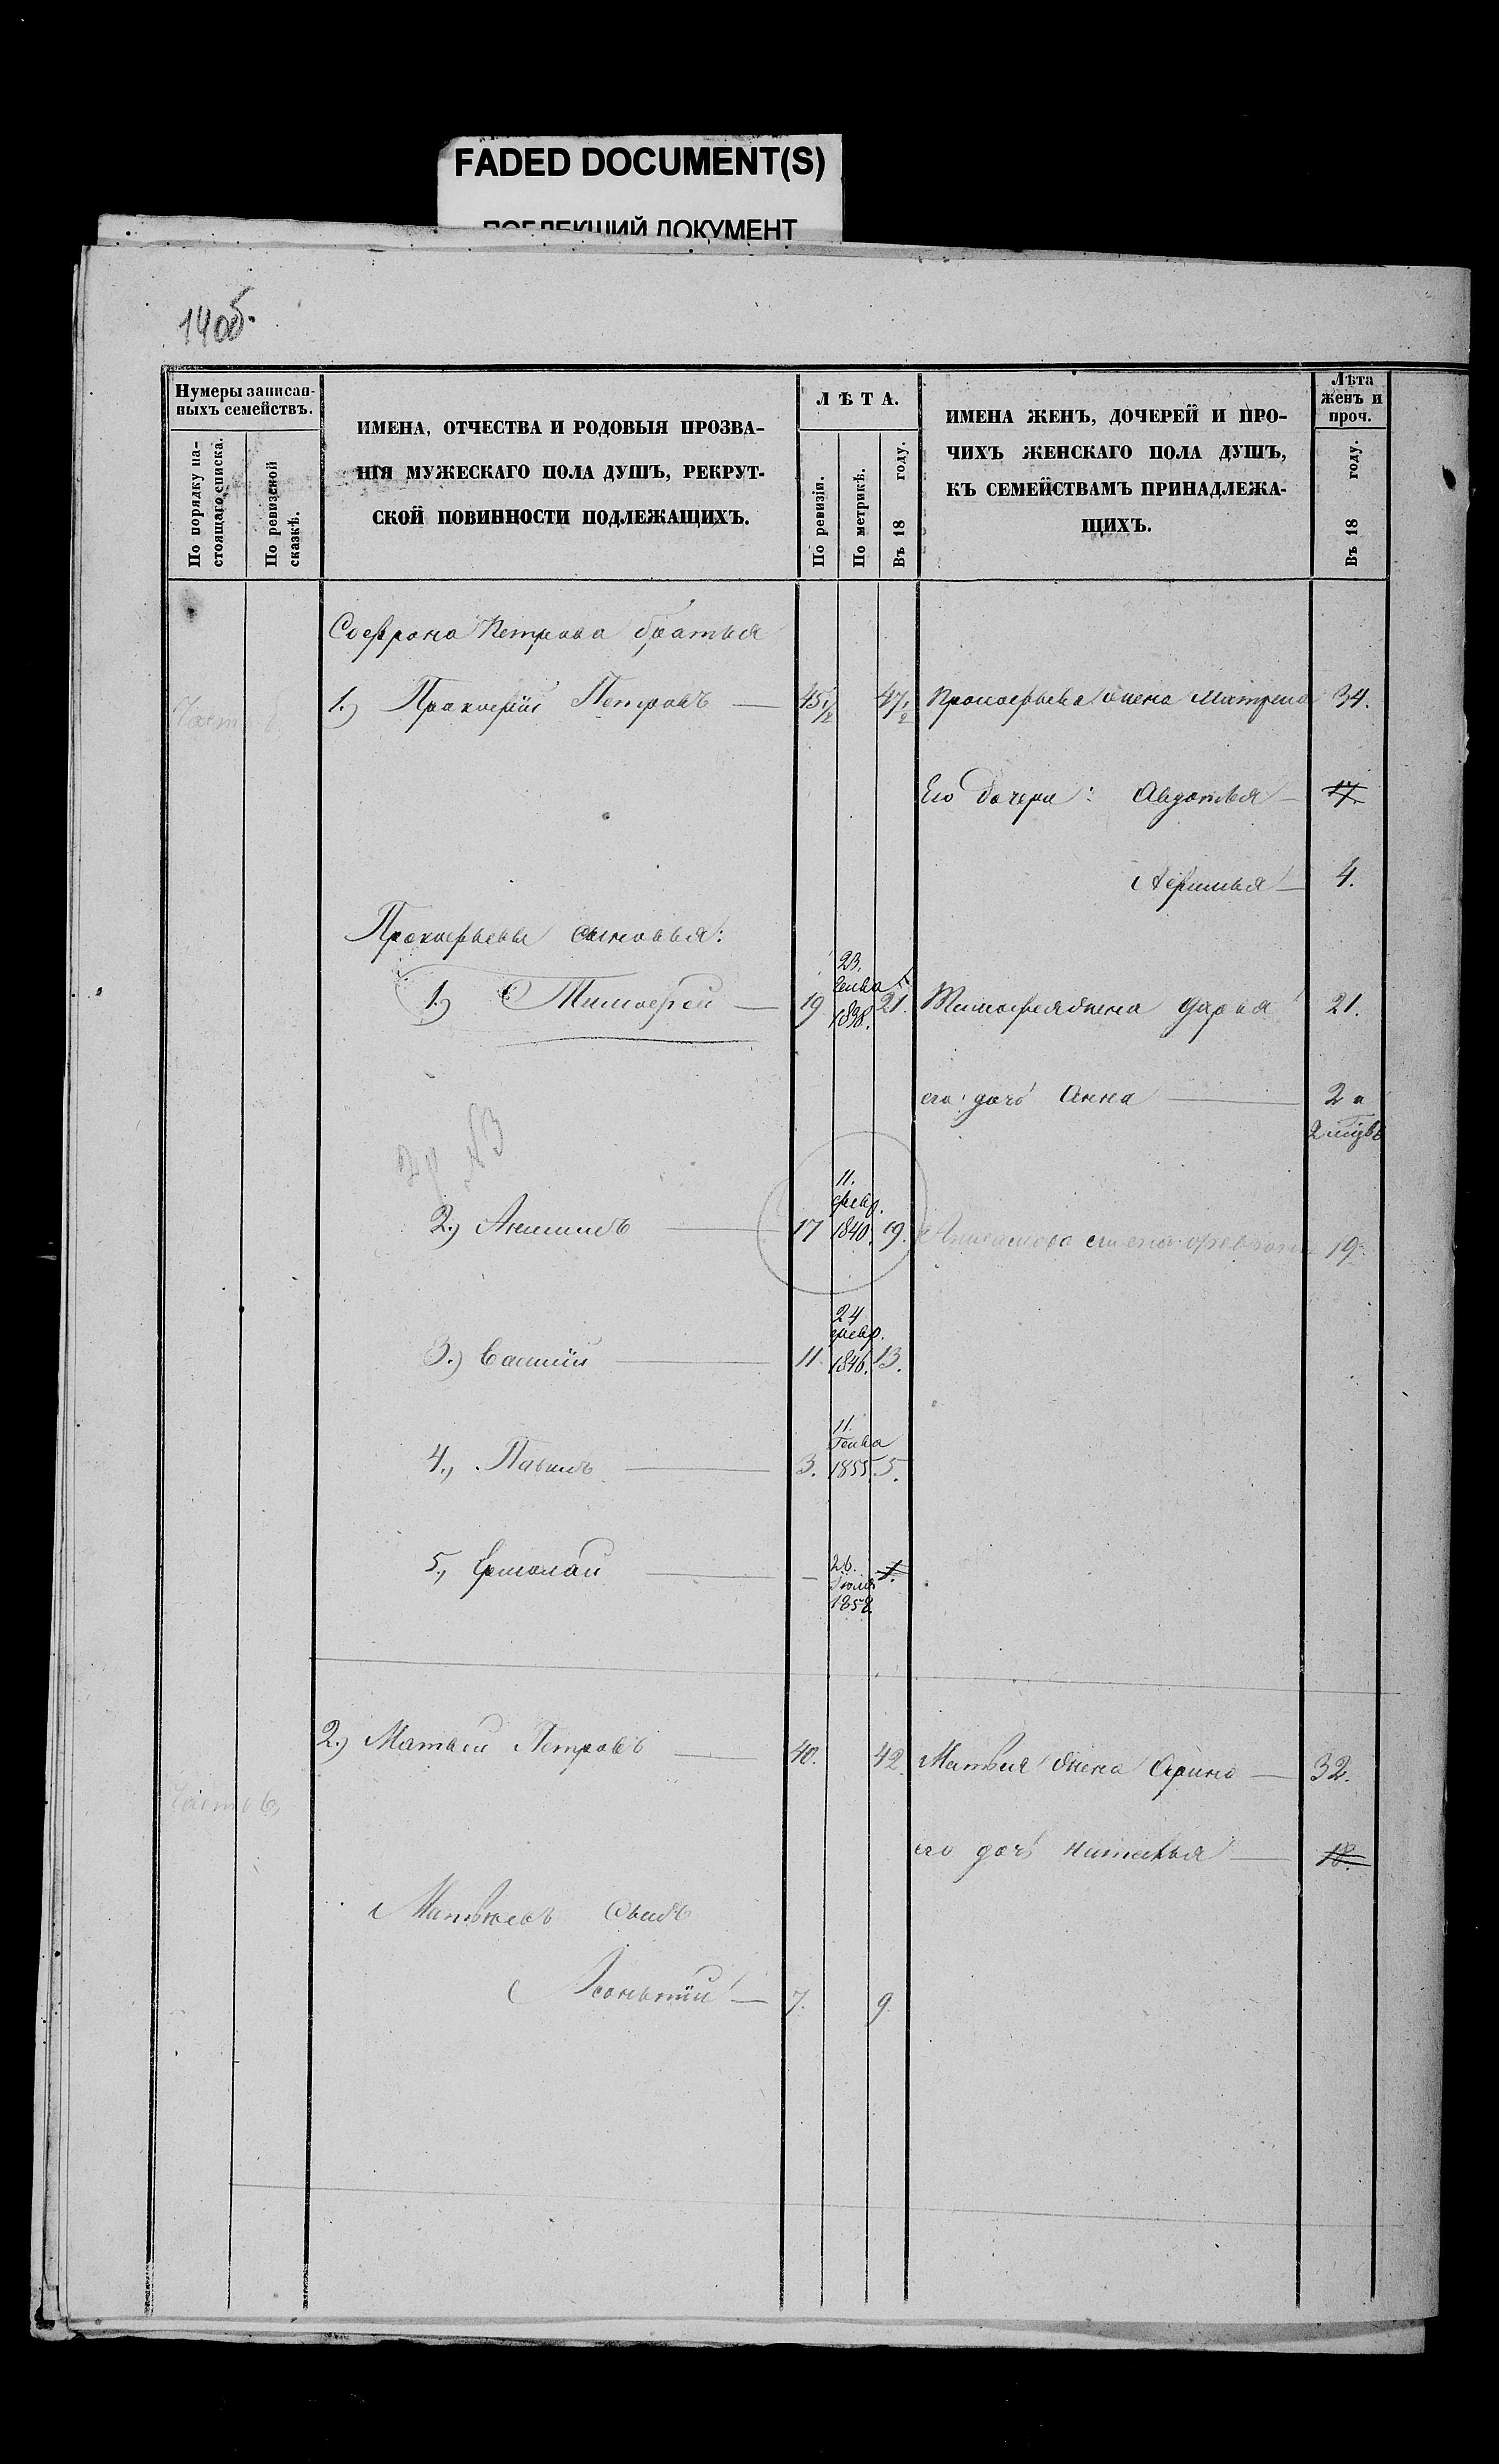 FADED DOCUMENT(S)
ПОБЛЕКШИЙ ДОКУМЕНТ
14об.
Нумеры записан-
ныхъ семействъ.
По порядку на-
стоящаго списка.
По ревизской
сказкѣ.
ИМЕНА, ОТЧЕСТВА И РОДОВЫЯ ПРОЗВА-
НІЯ МУЖЕСКАГО ПОЛА ДУШЪ, РЕКРУТ-
СКОЙ ПОВИННОСТИ ПОДЛЕЖАЩИХЪ.
ЛѢТА.
По ревизіи.
По метрикѣ.
Въ 18 году.
ИМЕНА ЖЕНЪ, ДОЧЕРЕЙ И ПРО-
ЧИХЪ ЖЕНСКАГО ПОЛА ДУШЪ,
КЪ СЕМЕЙСТВАМЪ ПРИНАДЛЕЖА-
ЩИХЪ.
Лѣта
женъ и
проч.
Въ 18 году.
Софрона Петрова братья
1.) Прокофій Петровъ — 45 1/2 47 1/2 Прокофьева жена Матрена 34.
Его дочери: Авдотья — 17.
Афимья — 4.
Прокофьевы сыновья:
1.) Тимофей — 19 23. Генва 1838. 21. Тимофея жена Дарья 21.
его дочь Анна — 2 и
2 мцвъ
№3
2.) Анисимъ — 17 11. февр. 1840. 19. Анисимова жена 19.
3.) Василій — 11. 24 февр. 1846. 13.
4., Павелъ — 3. 11. Генва 1855. 5.
5., Ермолай — — 26. Іюля 1858. 1.
2.) Матвей Петровъ — 40. 42. Матвея жена Арина — 32.
его дочь Наталья — 18.
Матвеевъ сынъ
Леонтій — 7. 9.